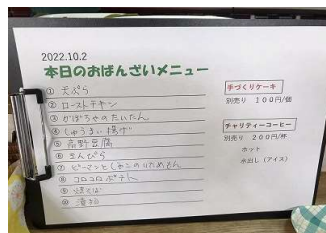 2022.10.2
本日のおばんざいメニュー
① 天ぷら
② ローストチキン
③ かぼちゃのたいたん
④ しゅうまい揚げ
⑤ 高野豆腐
⑥ きんぴら
⑦ ピーマンとじゃこのいためもん
⑧ コロコロポテト
⑨ 焼そば
⑩ 漬物
手づくりケーキ
別売り 100円/個
チャリティーコーヒー
別売り 200円/杯
ホット
水出し(アイス)